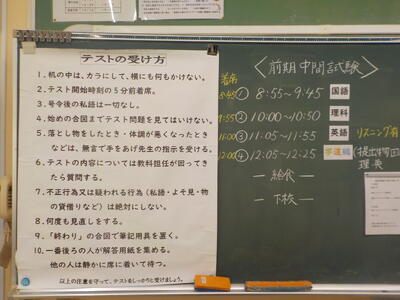 テストの受け方
1．机の中は、カラにして、横にも何もかけない。
2．テスト開始時刻の5分前着席。
3．号令後の私語は一切なし。
4．始めの合図までテスト問題を見てはいけない。
5．落とし物をしたとき・体調が悪くなったとき
などは、無言で手をあげ先生の指示を受ける。
6．テストの内容については教科担任が回ってき
たら質問する。
7．不正行為又は疑われる行為（私語・よそ見・物
の貸借りなど）は絶対にしない。
8．何度も見直しをする。
9．「終わり」の合図で筆記用具を置く。
10．一番後ろの人が解答用紙を集める。
他の人は静かに席に着いて待つ。
以上の注意を守って、テストをしっかりと受けましょう。
〈前期中間試験〉
着席
8:45 ① 8:55〜9:45 国語
9:55 ② 10:00〜10:50 理科
11:00 ③ 11:05〜11:55 英語 リスニング有
12:00 ④ 12:05〜12:25 学運組
理・英
― 給食 ―
― 下校 ―